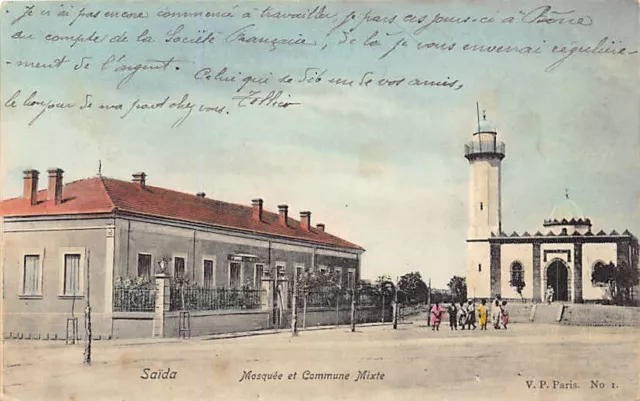 Je n'ai pas encore commencé à travailler, je pars ces jours-ci à Bône
au compte de la Société Française, de là je vous enverrai régulière-
ment de l'argent. Celui qui se dit un de vos amis,
le bonjour de ma part chez vous.
Saïda
Mosquée et Commune Mixte
V. P. Paris. No 1.